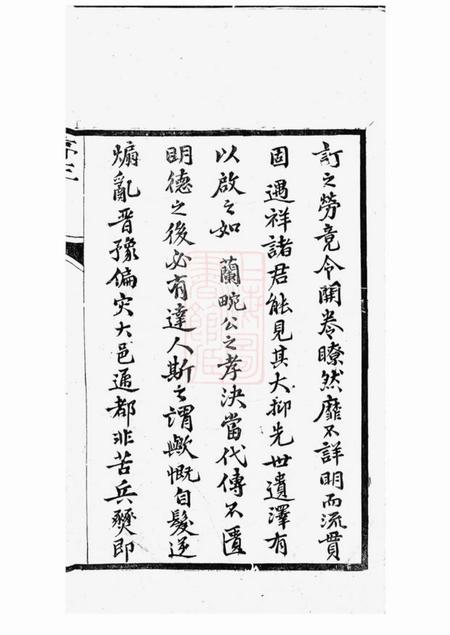 訂之勞竟令開卷瞭然靡不詳明而流貫
固遇祥諸君能見其大抑先世遺澤有
以啟之如蘭畹公之孝決當代傳不匱
明德之後必有達人斯之謂歟慨自髮逆
煽亂晋豫偏灾大邑通都非苦兵燹即
序三